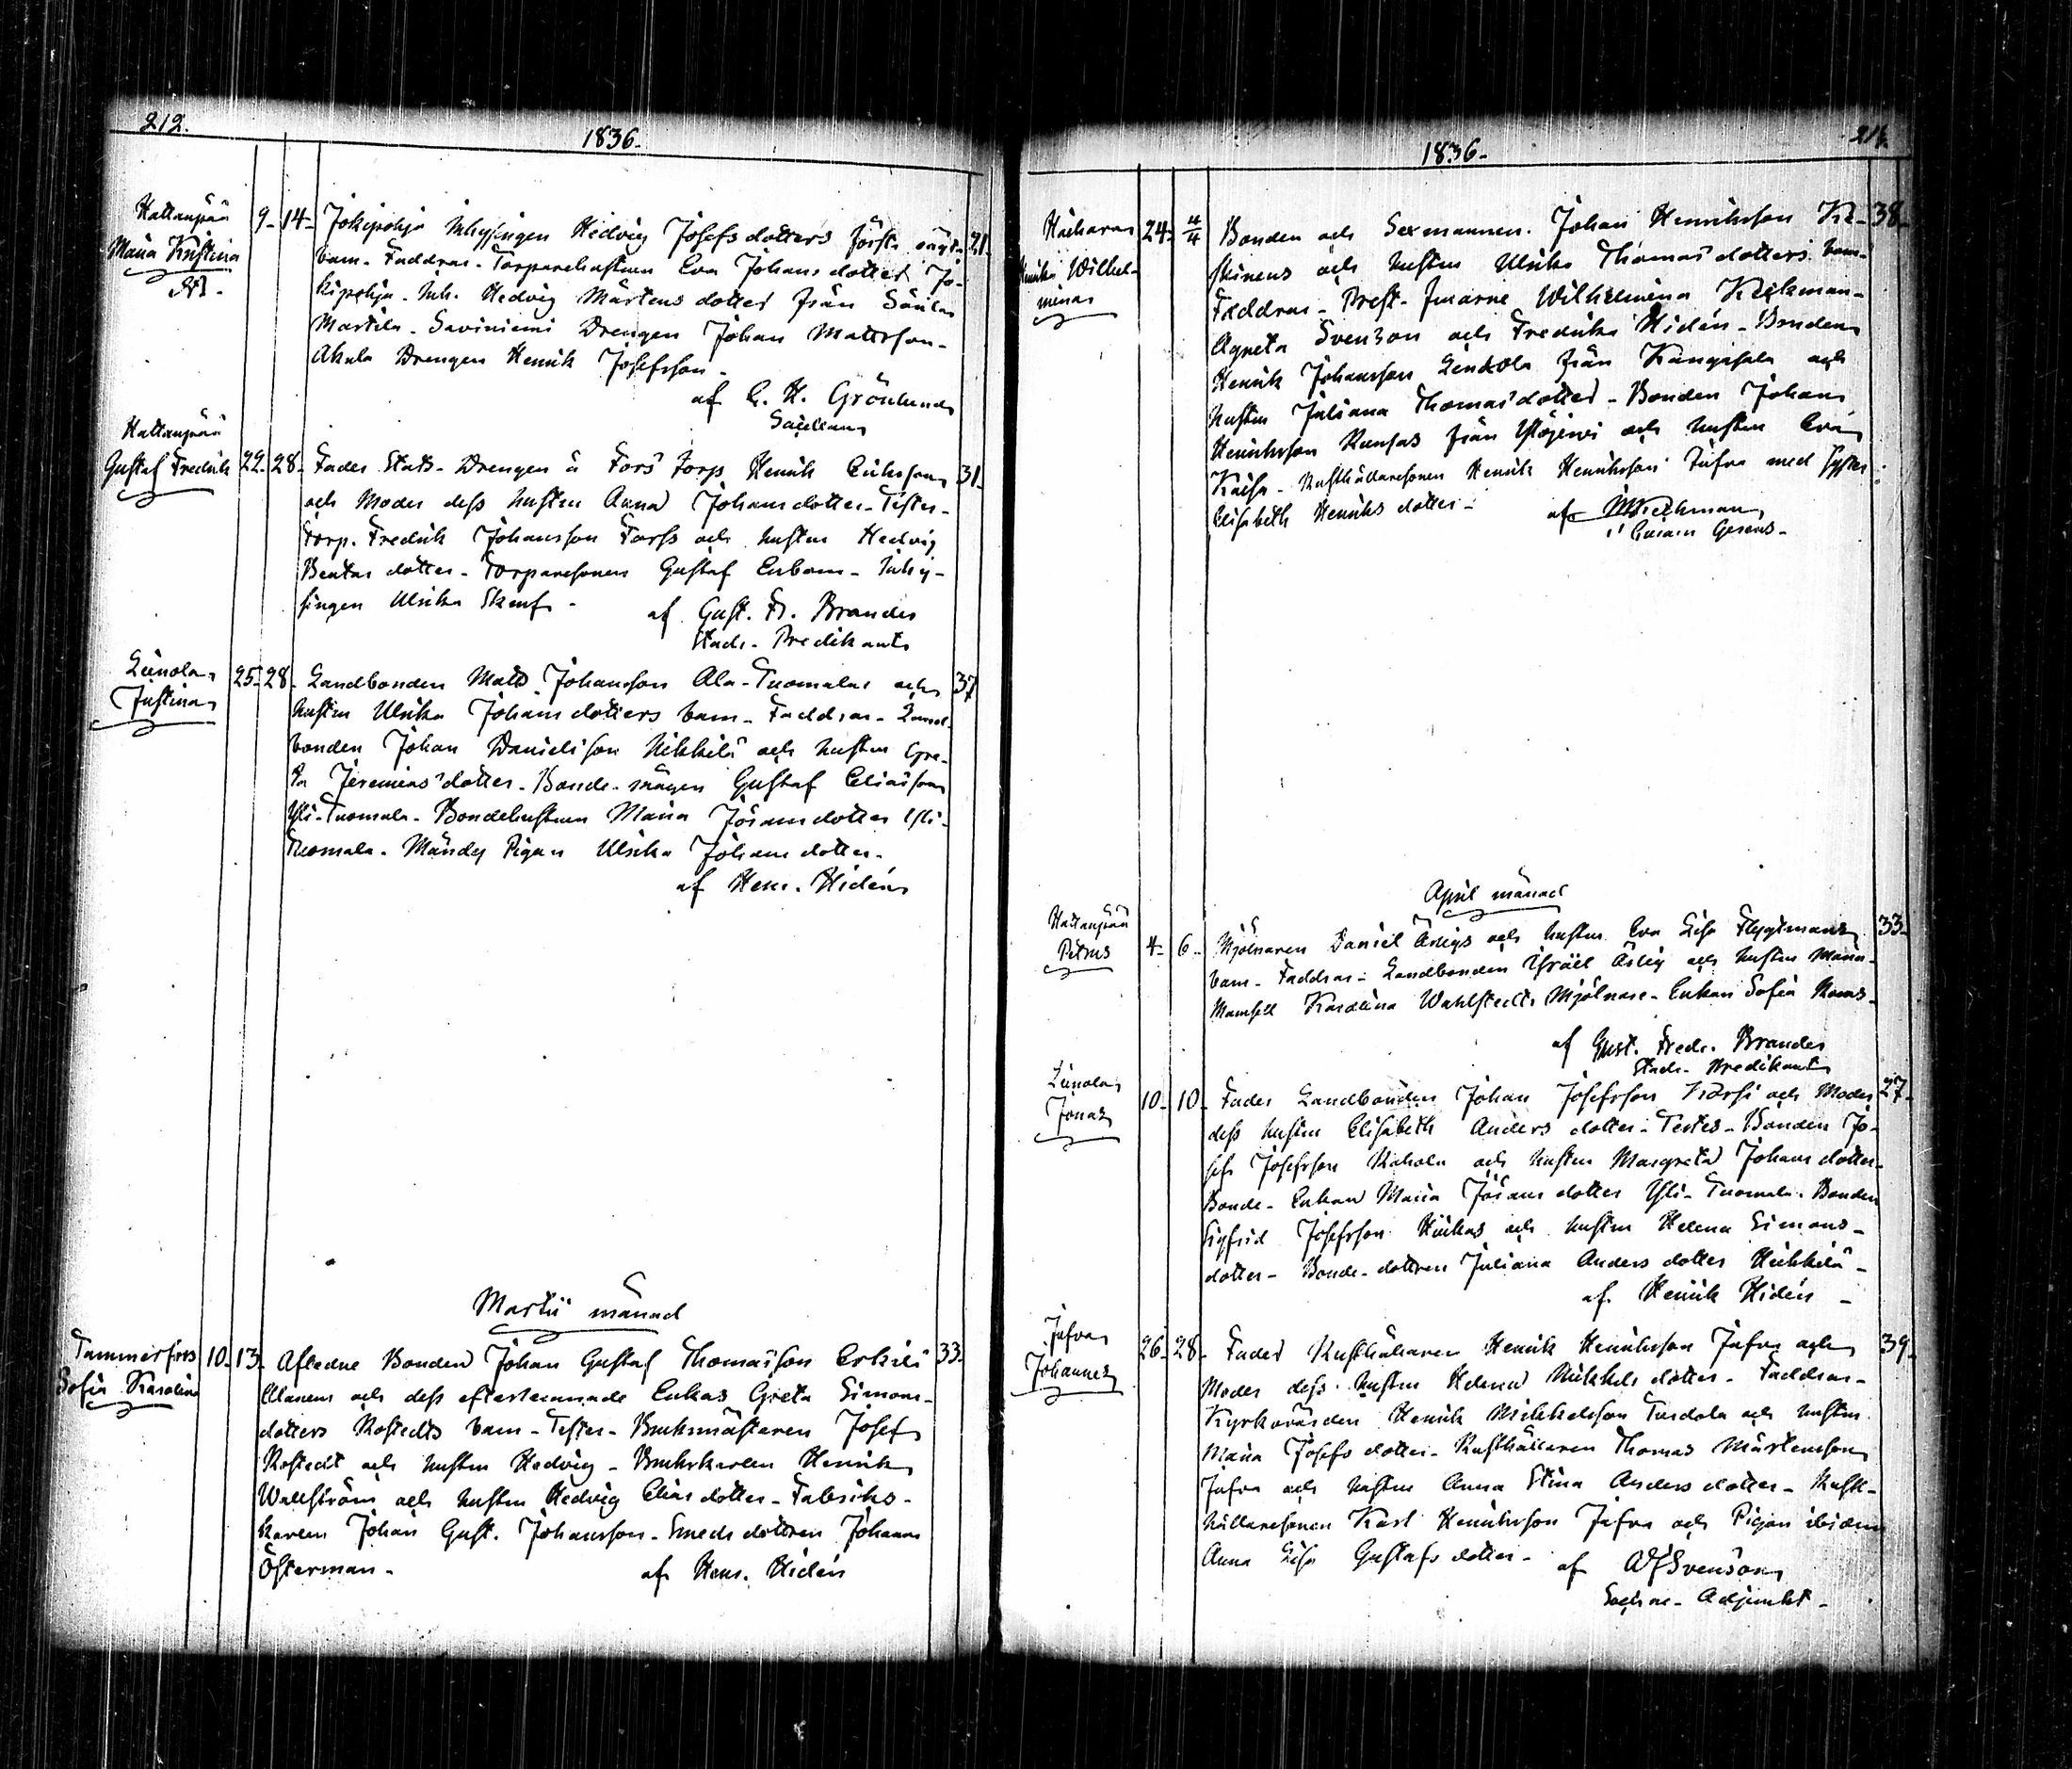 212.
1836.
Hattanpää
Maria Kristina
9. 14. Jokipohja Inhysingen Hedvig Josefsdotters första oägt. 21.
barn. Faddrar. Torparehustrun Eva Johansdotter Jo-
kipohja. Inh. Hedvig Mårtensdotter från
Martila. Saviniemi Drengen Johan Mattsson.
Akala Drengen Henrik Josefsson.
af C. H. Grönlund
Hattanpää
Gustaf Fredrik 22. 28. Fader Stats-Drengen å Fors torp Henrik Erikson 31.
och Moder dess hustru Anna Johansdotter. Tester.
Torp. Fredrik Johansson Forss och hustru Hedvig
Bentas dotter. Torparesonen Gustaf Enbom. Inhy-
singen Ulrika
af Gust. Fr. Brander
Stads-Predikant
Liinola
Justina
25. 28. Landbonden Matts Johansson Ala-Tuomalas och 37
hustru Ulrika Johansdotters barn. Faddrar. Land-
bonden Johan Danielsson Nikkilä och hustru Gre-
ta Jeremias dotter. Bonde-mågen Gustaf Eliasson
Yli-Tuomala. Bondehustrun Maria Jöransdotter Yli-
Tuomala. Mändy Pigan Ulrika Johansdotter.
af Henr. Hidén
Martii månad
Tammerfors
Sofia Karolina
10. 13. Afledne Bonden Johan Gustaf Thomasson Erkilä 33.
och dess efterlemnade Enkas Greta Simons-
dotters Rostedts barn. Tester. Bruksmästaren Josef
Rostedt och hustru Hedvig. Brukskarlen Henrik
Wallström och hustru Hedvig Eliasdotter. Fabriks-
karlen Johan Gust. Johansson. Smedsdottren Johanna
Österman.
af Henr. Hidén
1836.
Haihara
Ulrika Wilhel-
mina
24. 4/4 Bonden och Sexmannen Johan Henriksson 38.
och hustru Ulrika Thomasdotters barn.
Faddrar. Prest-fruarne Wilhelmina Kiekman.
Agneta Svenson och Fredrika Hidén. Bonden
Henrik Johansson Linkola från Kangasala och
hustru Juliana Thomasdotter. Bonden Johan
Henriksson från Ylöjervi och hustru Eva
Kaisa. Rusthållaresonen Henrik Henriksson Jufva med syster
Elisabeth Henriksdotter.
af
April månad
Hattanpää
Petrus
4. 6. Mjölnaren Daniel Åbergs och hustru Eva Lisa Flygtmans 33.
barn. Faddrar. Landbonden Israel Åberg och hustru Maria.
Mamsell Karolina Wahlstedt. Mjölnare-Enkan Sofia
af Gust. Fredr. Brander
Stads-Predikant
Liinola
Jonas
10. 10. Fader Landbonden Johan Josefsson Korpi och Moder 27.
dess hustru Elisabeth Andersdotter. Testes. Bonden Jo-
sef Josefsson Kohola och hustru Margreta Johansdotter.
Bonde-Enkan Maria Jöransdotter Yli-Tuomala. Bonden
Sigfrid Josefsson och hustru Helena Simons-
dotter. Bonde-dottren Juliana Andersdotter
af Henrik Hidén
Jufva
Johannes
26. 28. Fader Rusthållaren Henrik Henriksson Jufva och 39.
Moder dess hustru Helena Mikkelsdotter. Faddrar.
Kyrkovärden Henrik Mikkelsson Turdola och hustru
Maria Josefsdotter. Rusthållaren Thomas Mårtensson
Jufva och hustru Anna Stina Andersdotter. Rust-
hållaresonen Karl Henriksson Jufva och Pigan ibidem
Anna Lisa Gustafsdotter.
af Svenson
Adjunkt